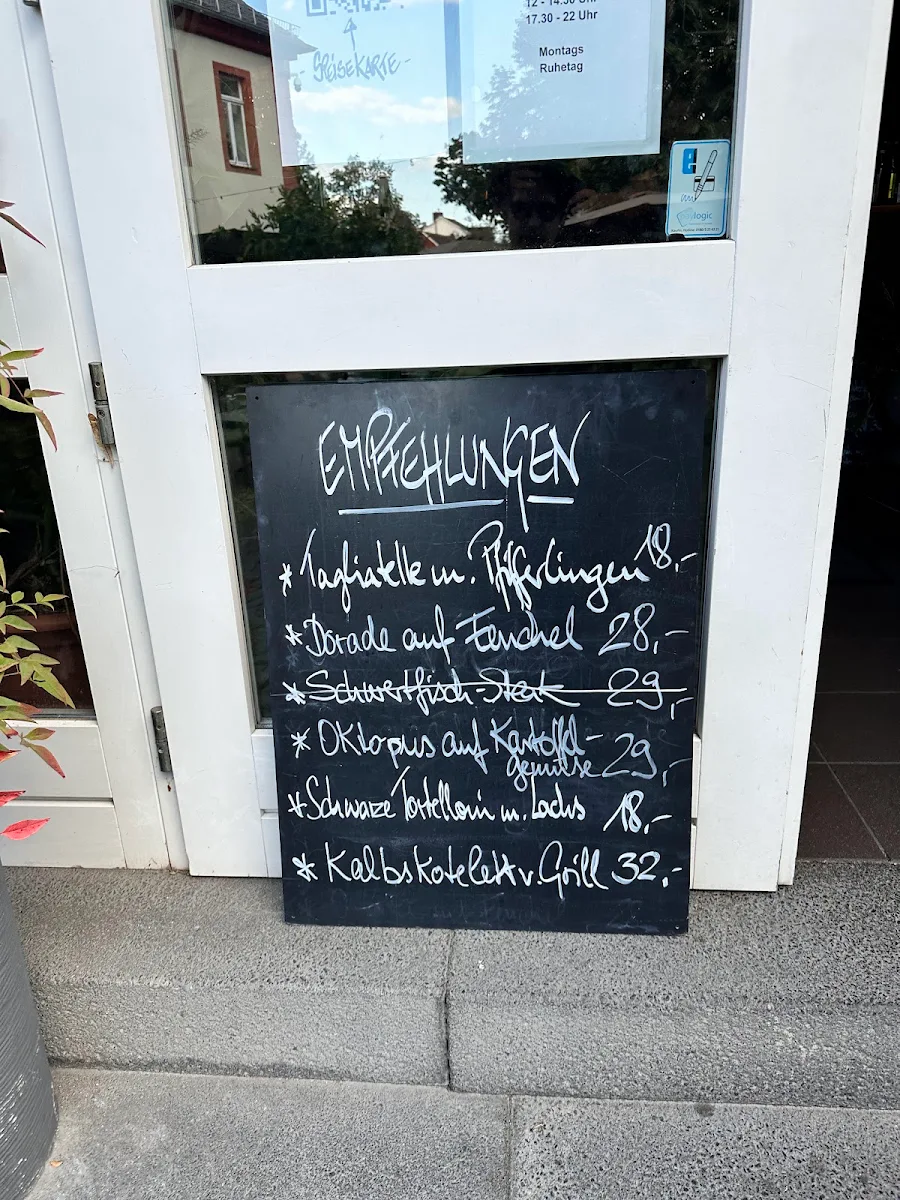 - SPEISEKARTE -
12 - 14.30 Uhr
17.30 - 22 Uhr
Montags
Ruhetag
EMPFEHLUNGEN
* Tagliatelle m. Pfifferlingen 18,-
* Dorade auf Fenchel 28,-
* Schwertfisch-Steak 29,-
* Oktopus auf Kartoffel-
gemüse 29,-
* Schwarze Tortelloni m. Lachs 18,-
* Kalbskotelett v. Grill 32,-